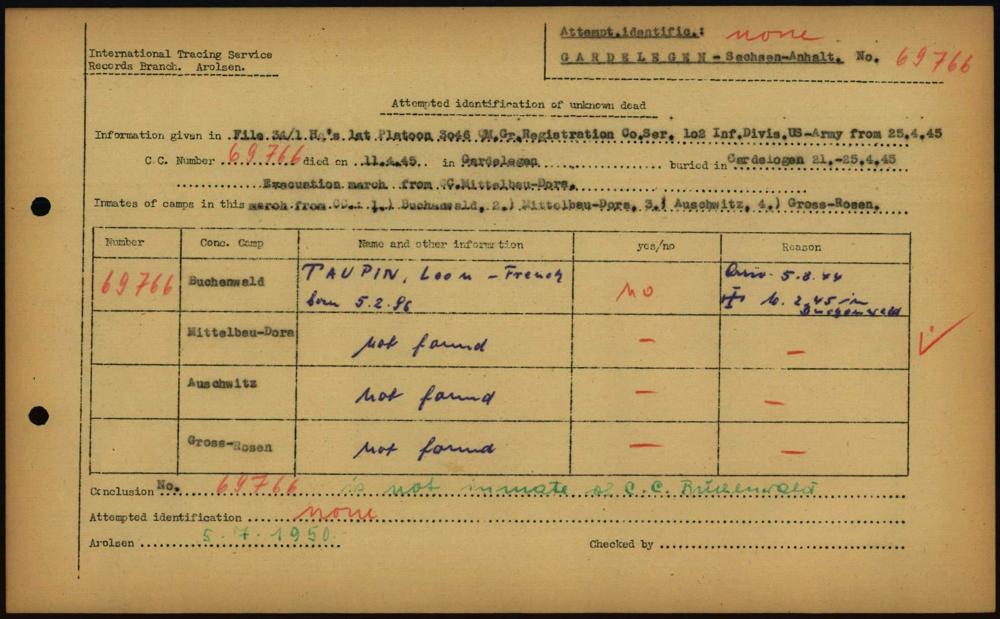 Attempt.identific.: none
International Tracing Service
Records Branch. Arolsen.
GARDELEGEN - Sachsen-Anhalt. No. 69766
Attempted identification of unknown dead
Information given in File 3A/1.Hq's.1st Platoon 3046 QM.Gr.Registration Co.Ser. 102 Inf.Divis.US-Army from 25.4.45
C.C. Number 69766 died on 11.4.45 in Gardelegen buried in Gardelegen 21.-25.4.45
Evacuation march from CC.Mittelbau-Dora.
Inmates of camps in this march from CC.: 1.) Buchenwald, 2.) Mittelbau-Dora, 3.) Auschwitz, 4.) Gross-Rosen.
Number Conc. Camp Name and other information yes/no Reason
69766 Buchenwald TAUPIN, Leon - French no 5.8.44
born 5.2.96 2.45 in
Buchenwald
Mittelbau-Dora not found – –
Auschwitz not found – –
Gross-Rosen not found – –
Conclusion No. 69766 is not inmate of C.C. Buchenwald
Attempted identification none
Arolsen 5.7.1950 Checked by